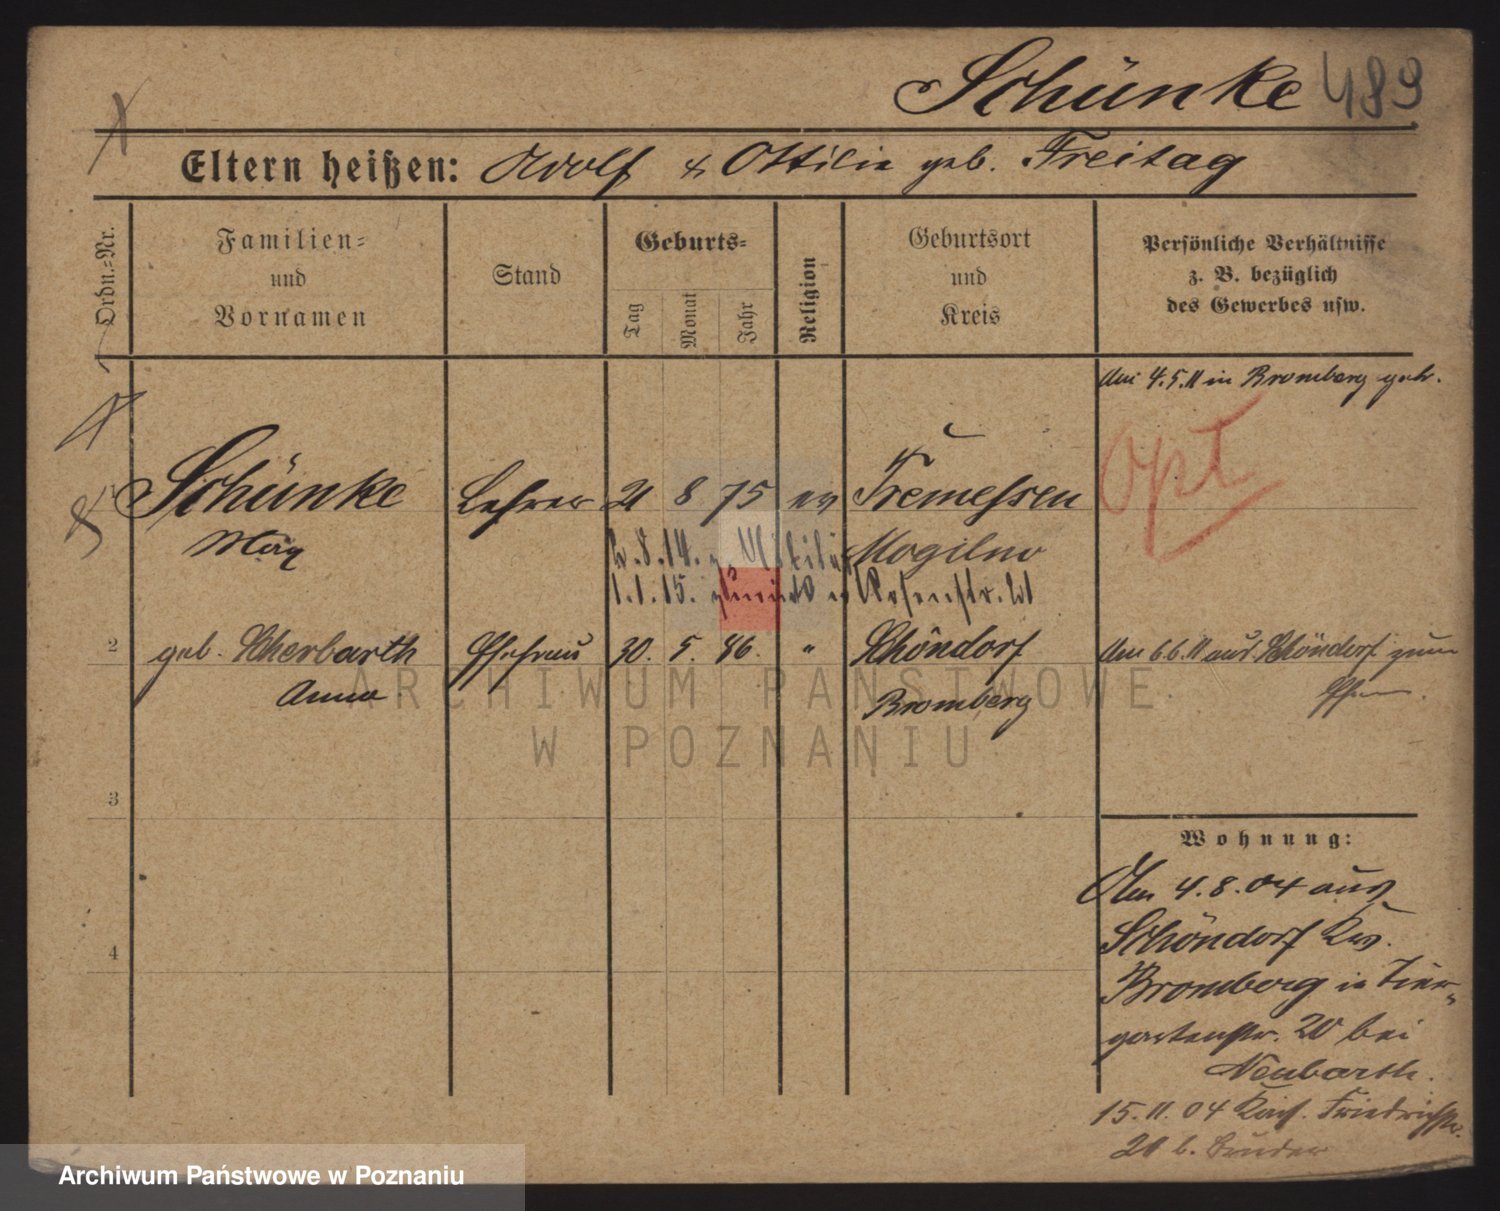 Schünke 489
Eltern heißen: Adolf & Ottilie geb. Freitag
Ordn.-Nr.
Familien-
und
Vornamen
Stand
Geburts-
Tag
Monat
Jahr
Religion
Geburtsort
und
Kreis
Persönliche Verhältnisse
z. B. bezüglich
des Gewerbes usw.
Am 4.5.11 in Bromberg geh.
Opt
Schünke Lehrer 21 8 75 ev Tremessen
Max Mogilno
2.8.14. z. Militär
1.1.15. zurück Rosenstr. 21
2 geb. Scherbarth Ehefrau 30. 5. 86. " Schöndorf
Anna Bromberg
Am 6.6.11 aus Schöndorf zum
Ehem.
ARCHIWUM PAŃSTWOWE
W POZNANIU
3
4
Wohnung:
Am 4.8.04 aus
Schöndorf Krs.
Bromberg in Tier-
gartenstr. 20 bei
Neubarth.
15.11.04 Kais. Friedrichstr.
20 b. Bruder
Archiwum Państwowe w Poznaniu